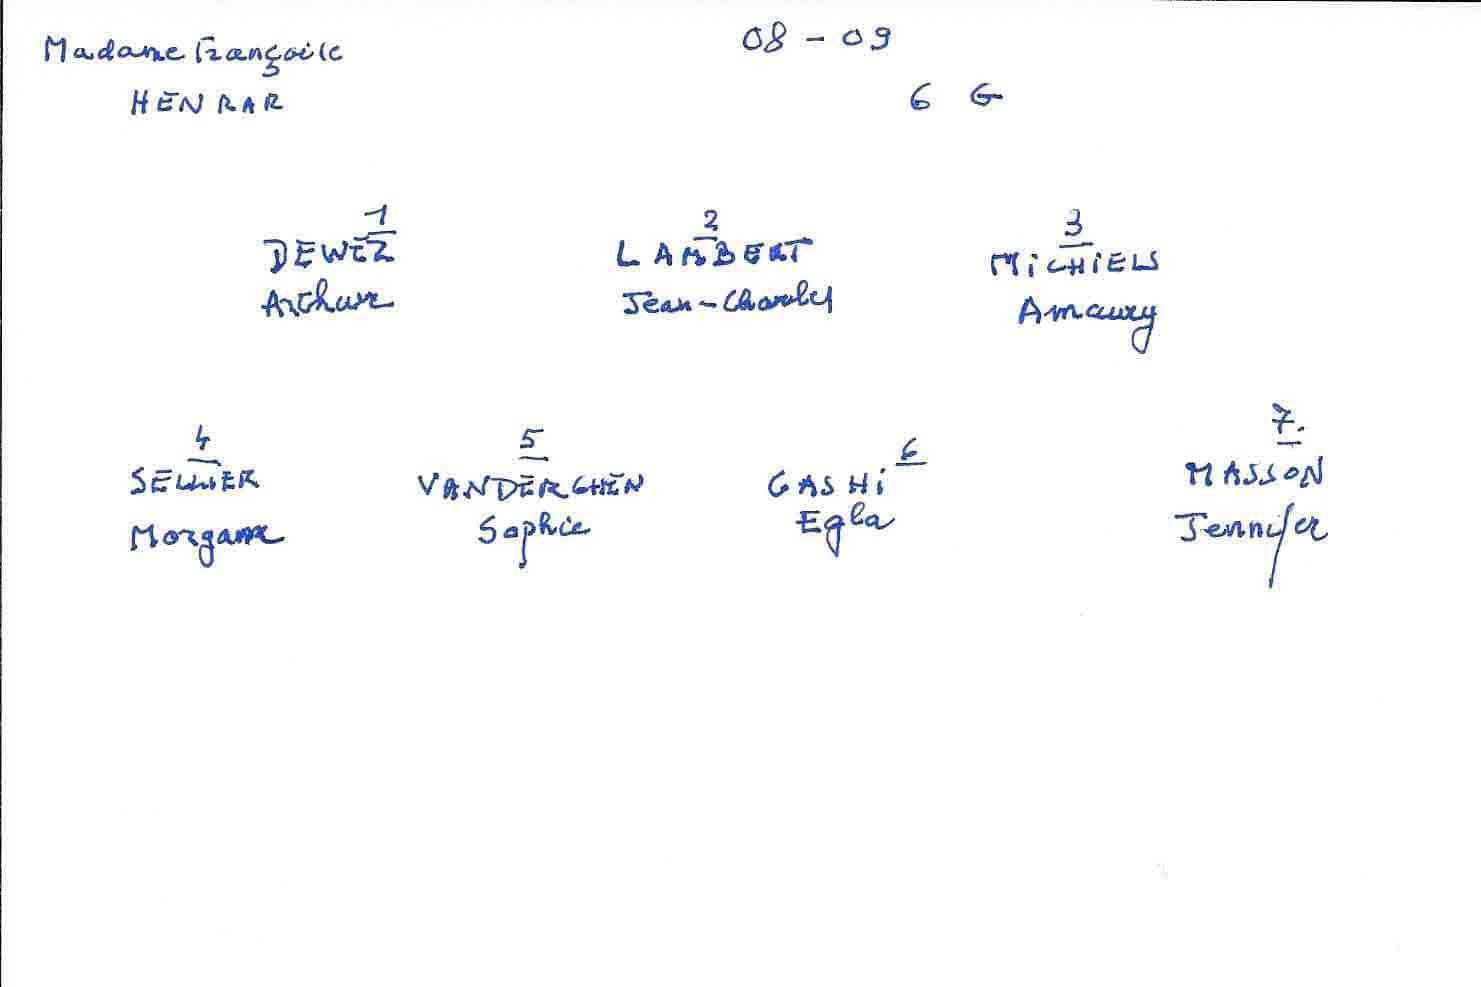 Madame Françoise
HENRAR
08 - 09
6 G
1
DEWEZ
Arthur
2
LAMBERT
Jean-Charles
3
MICHIELS
Amaury
4
SELLIER
Morgane
5
VANDERGHEN
Sophie
6
GASHI
Egla
7.
MASSON
Jennifer